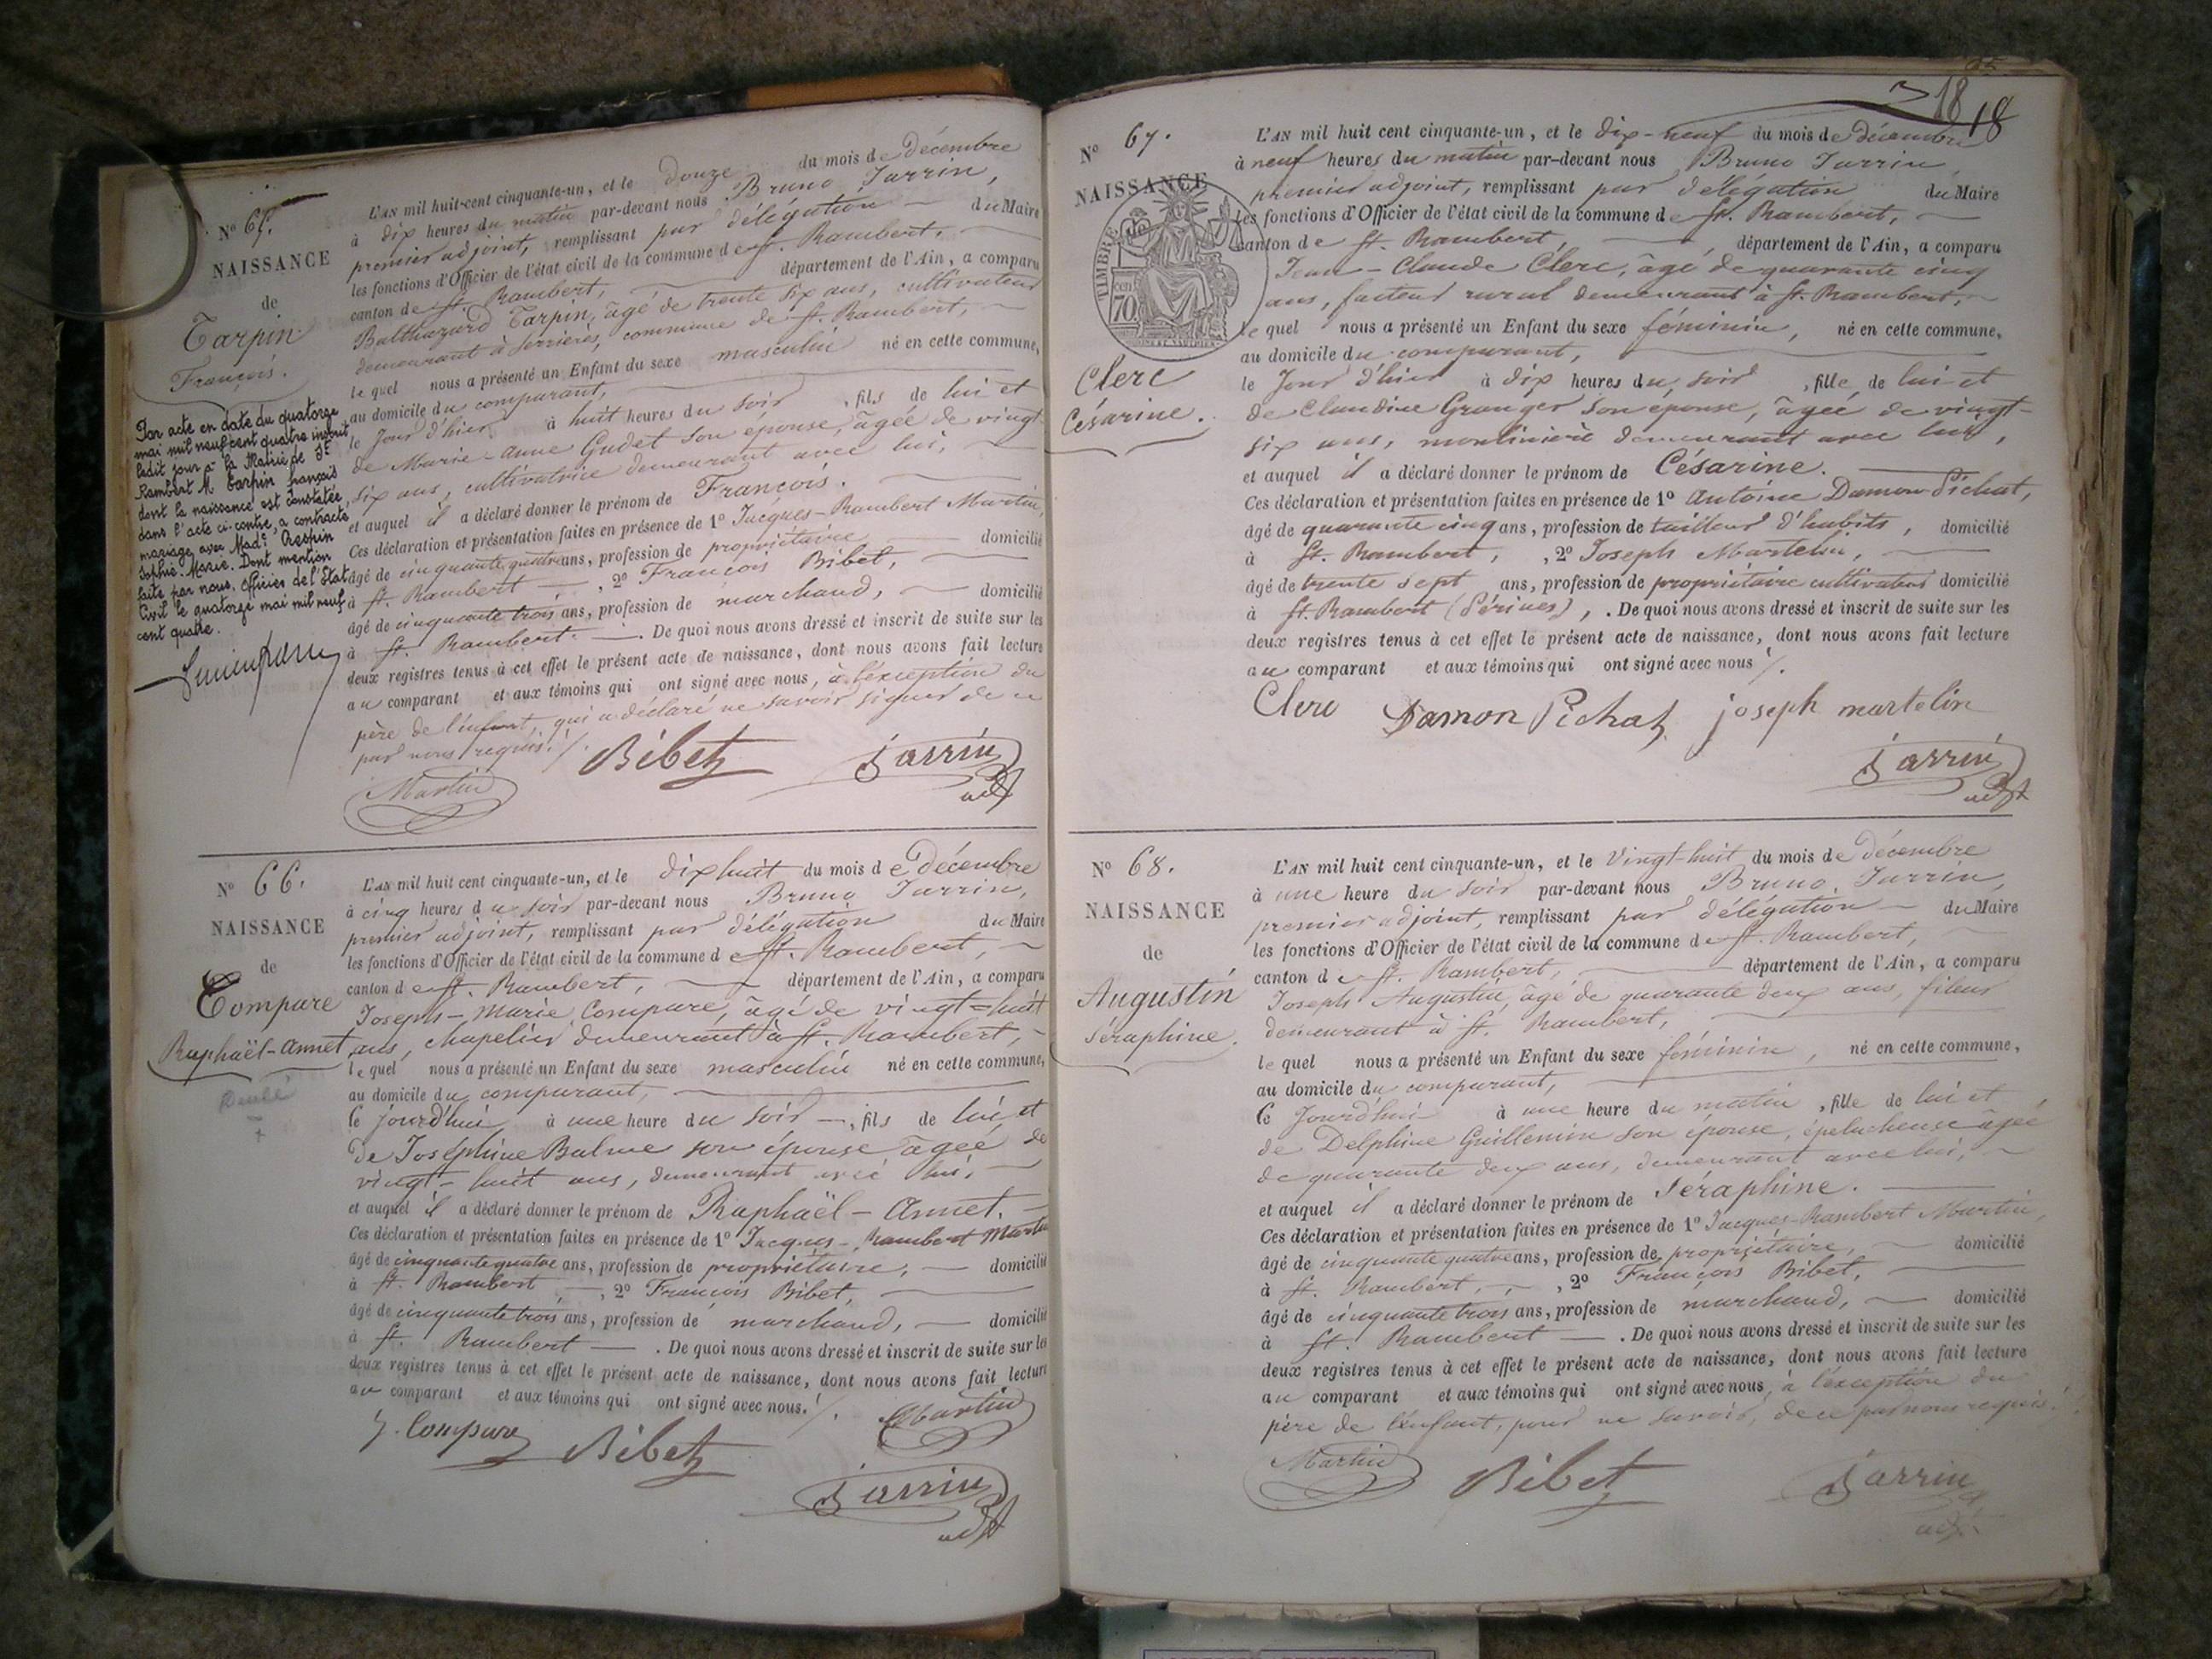 N° 65.
NAISSANCE
de
Tarpin
François.
Par acte en date du quatorze
mai mil neuf cent quatre inscrit
ledit jour à la Mairie de St
Rambert M. Tarpin françois
dont la naissance est constatée
dans l'acte ci-contre, a contracté
mariage avec Made Crespin
Sophie-Marie. Dont mention
faite par nous, officier de l'Etat
Civil le quatorze mai mil neuf
cent quatre.
L'AN mil huit cent cinquante-un, et le douze du mois de décembre
à dix heures du matin par-devant nous Bruno Jarrin,
premier adjoint, remplissant par délégation du Maire
les fonctions d'Officier de l'état civil de la commune de St. Rambert,
canton de St. Rambert, département de l'Ain, a comparu
Balthazard Tarpin, âgé de trente six ans, cultivateur
demeurant à Serrières, commune de St. Rambert,
lequel nous a présenté un Enfant du sexe masculin né en cette commune,
au domicile du comparant,
le jour d'hier à huit heures du soir, fils de lui et
de Marie-Anne Gudet son épouse, âgée de vingt
six ans, cultivatrice demeurant avec lui,
et auquel il a déclaré donner le prénom de François.
Ces déclaration et présentation faites en présence de 1° Jacques-Rambert Martin,
âgé de cinquante quatre ans, profession de propriétaire domicilié
à St. Rambert, 2° François Bibet,
âgé de cinquante trois ans, profession de marchand, domicilié
à St. Rambert. De quoi nous avons dressé et inscrit de suite sur les
deux registres tenus à cet effet le présent acte de naissance, dont nous avons fait lecture
au comparant et aux témoins qui ont signé avec nous, à l'exception du
père de l'enfant, qui a déclaré ne savoir signer de ce
par nous requis.
Martin Bibet Jarrin
adjt
N° 66.
NAISSANCE
de
Compare
Raphaël-Annet
L'AN mil huit cent cinquante-un, et le dix huit du mois de décembre
à cinq heures du soir par-devant nous Bruno Jarrin,
premier adjoint, remplissant par délégation du Maire
les fonctions d'Officier de l'état civil de la commune de St. Rambert,
canton de St. Rambert, département de l'Ain, a comparu
Joseph-Marie Compare, âgé de vingt=huit
ans, chapelier demeurant à St. Rambert,
lequel nous a présenté un Enfant du sexe masculin né en cette commune,
au domicile du comparant,
Ce jourd'hui à une heure du soir, fils de lui et
de Joséphine Balme son épouse âgée de
vingt-huit ans, demeurant avec lui,
et auquel il a déclaré donner le prénom de Raphaël-Annet.
Ces déclaration et présentation faites en présence de 1° Jacques-Rambert Martin
âgé de cinquante quatre ans, profession de propriétaire, domicilié
à St. Rambert, 2° François Bibet,
âgé de cinquante trois ans, profession de marchand, domicilié
à St. Rambert. De quoi nous avons dressé et inscrit de suite sur les
deux registres tenus à cet effet le présent acte de naissance, dont nous avons fait lecture
au comparant et aux témoins qui ont signé avec nous.
J. Compare Bibet Martin
Jarrin
adjt
18 18
N° 67.
NAISSANCE
TIMBRE
70 cen
Clerc
Césarine.
L'AN mil huit cent cinquante-un, et le dix-neuf du mois de décembre
à neuf heures du matin par-devant nous Bruno Jarrin
premier adjoint, remplissant par délégation du Maire
les fonctions d'Officier de l'état civil de la commune de St. Rambert,
canton de St. Rambert, département de l'Ain, a comparu
Jean-Claude Clerc, âgé de quarante cinq
ans, facteur rural demeurant à St. Rambert,
lequel nous a présenté un Enfant du sexe féminin, né en cette commune,
au domicile du comparant,
le Jour d'hier à dix heures du soir, fille de lui et
de Claudine Granger son épouse, âgée de vingt-
six ans, moulinière demeurant avec lui,
et auquel il a déclaré donner le prénom de Césarine.
Ces déclaration et présentation faites en présence de 1° Antoine Damon Pichat,
âgé de quarante cinq ans, profession de tailleur d'habits, domicilié
à St. Rambert, 2° Joseph Martelin,
âgé de trente sept ans, profession de propriétaire cultivateur domicilié
à St. Rambert (Sérines), . De quoi nous avons dressé et inscrit de suite sur les
deux registres tenus à cet effet le présent acte de naissance, dont nous avons fait lecture
au comparant et aux témoins qui ont signé avec nous.
Clerc Damon Pichat joseph martelin
Jarrin
adjt
N° 68.
NAISSANCE
de
Augustin
Séraphine.
L'AN mil huit cent cinquante-un, et le vingt-huit du mois de décembre
à une heure du soir par-devant nous Bruno Jarrin,
premier adjoint, remplissant par délégation du Maire
les fonctions d'Officier de l'état civil de la commune de St. Rambert,
canton de St. Rambert, département de l'Ain, a comparu
Joseph Augustin, âgé de quarante deux ans, fileur
demeurant à St. Rambert,
lequel nous a présenté un Enfant du sexe féminin, né en cette commune,
au domicile du comparant,
Ce Jourd'hui à une heure du matin, fille de lui et
de Delphine Guillemin son épouse, éplucheuse âgée
de quarante deux ans, demeurant avec lui,
et auquel il a déclaré donner le prénom de Séraphine.
Ces déclaration et présentation faites en présence de 1° Jacques-Rambert Martin,
âgé de cinquante quatre ans, profession de propriétaire, domicilié
à St. Rambert, 2° François Bibet,
âgé de cinquante trois ans, profession de marchand, domicilié
à St. Rambert. De quoi nous avons dressé et inscrit de suite sur les
deux registres tenus à cet effet le présent acte de naissance, dont nous avons fait lecture
au comparant et aux témoins qui ont signé avec nous, à l'exception du
père de l'enfant, pour ne savoir, de ce par nous requis.
Martin Bibet Jarrin
adjt